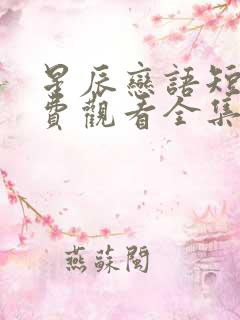 星辰戀語短
費觀看全集
燕蘇閩